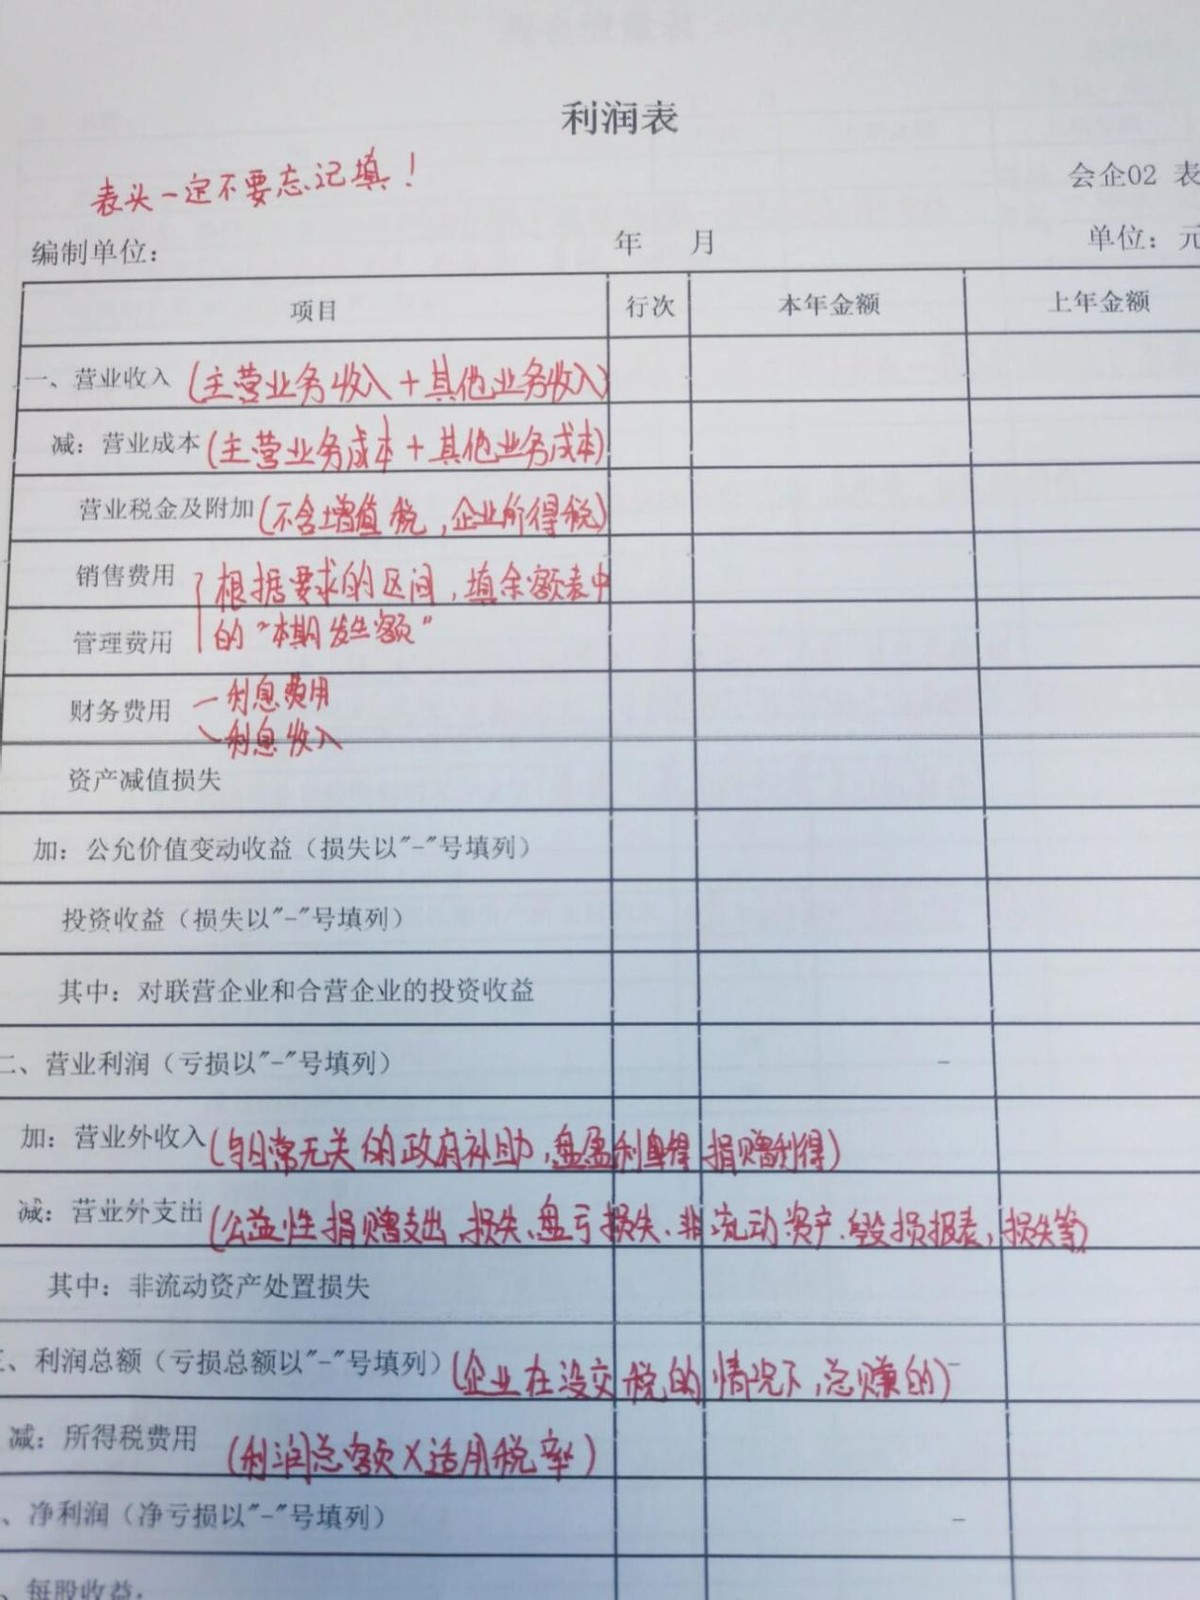 利润表
表头一定不要忘记填！
会企02 表
编制单位： 年 月 单位：元
项目 行次 本年金额 上年金额
一、营业收入 (主营业务收入+其他业务收入)
减：营业成本 (主营业务成本+其他业务成本)
营业税金及附加 (不含增值税,企业所得税)
销售费用 根据要求的区间,填余额表中
管理费用 的"本期发生额"
财务费用 利息费用
利息收入
资产减值损失
加：公允价值变动收益（损失以"-"号填列）
投资收益（损失以"-"号填列）
其中：对联营企业和合营企业的投资收益
二、营业利润（亏损以"-"号填列） -
加：营业外收入 (与日常无关的政府补助,盘盈利得 捐赠利得)
减：营业外支出 (公益性捐赠支出、损失、盘亏损失、非流动资产、毁损报表,损失等)
其中：非流动资产处置损失
三、利润总额（亏损总额以"-"号填列） (企业在没交税的情况下,总赚的) -
减：所得税费用 (利润总额×适用税率)
、净利润（净亏损以"-"号填列） -
、每股收益：